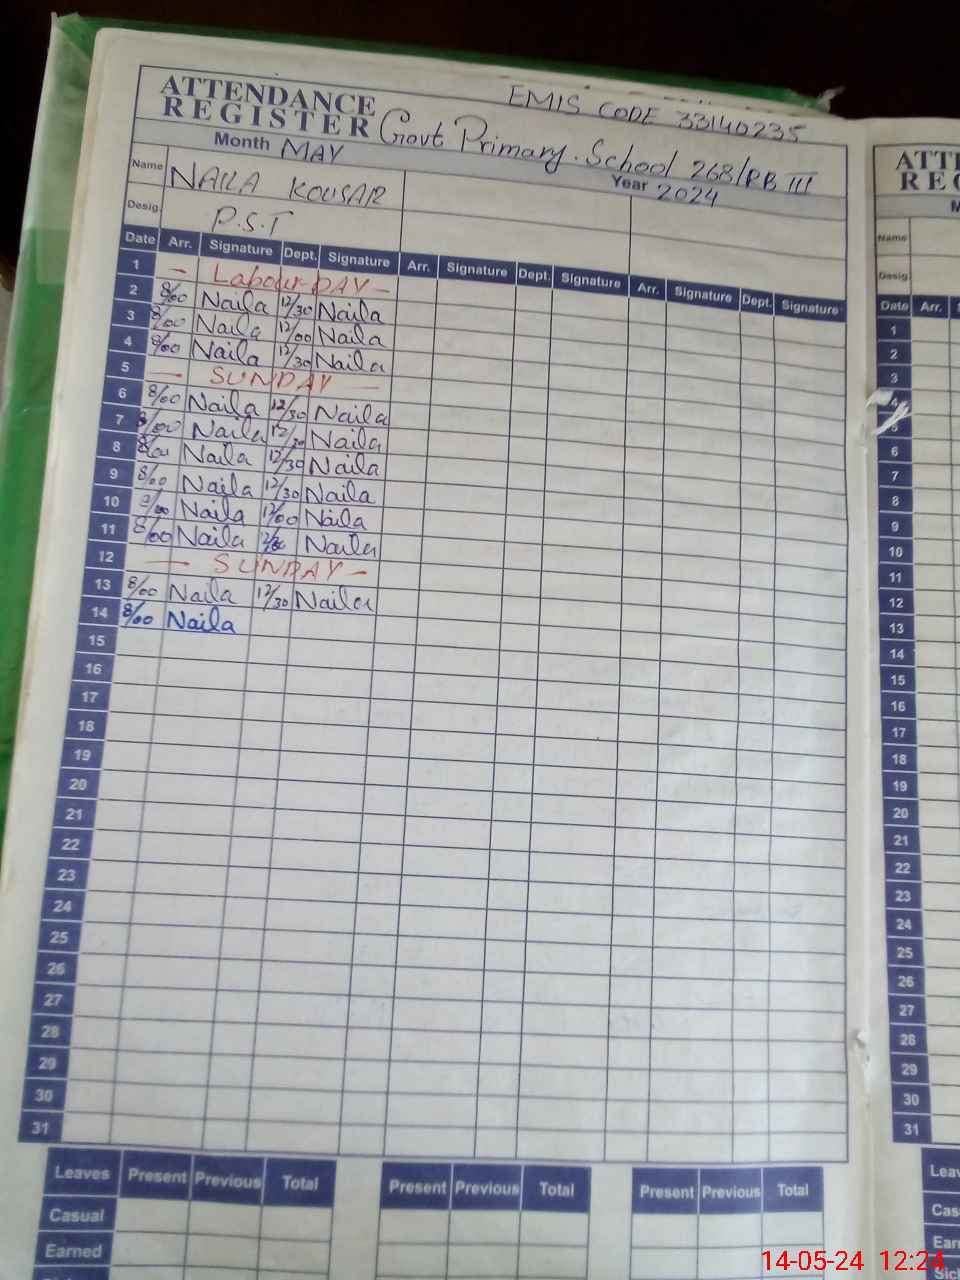 EMIS CODE 33140235
ATTENDANCE
REGISTER Govt Primary. School 268/RB III
Month MAY Year 2024
Name NAILA KOUSAR
Desig. P.S.T
Date Arr. Signature Dept. Signature Arr. Signature Dept. Signature Arr. Signature Dept. Signature
1 — Labour DAY —
2 8/00 Naila 12/30 Naila
3 8/00 Naila 12/00 Naila
4 8/00 Naila 12/30 Naila
5 — SUNDAY —
6 8/00 Naila 12/30 Naila
7 8/00 Naila 12/30 Naila
8 8/00 Naila 12/30 Naila
9 8/00 Naila 12/30 Naila
10 8/00 Naila 12/00 Naila
11 8/00 Naila Naila
12 — SUNDAY —
13 8/00 Naila 12/30 Naila
14 8/00 Naila
15
16
17
18
19
20
21
22
23
24
25
26
27
28
29
30
31
Leaves Present Previous Total Present Previous Total Present Previous Total
Casual
Earned
ATT
RE
Name
Desig
Date Arr.
1
2
3
4
5
6
7
8
9
10
11
12
13
14
15
16
17
18
19
20
21
22
23
24
25
26
27
28
29
30
31
Leav
Cas
Ear
Sic
14-05-24 12:24